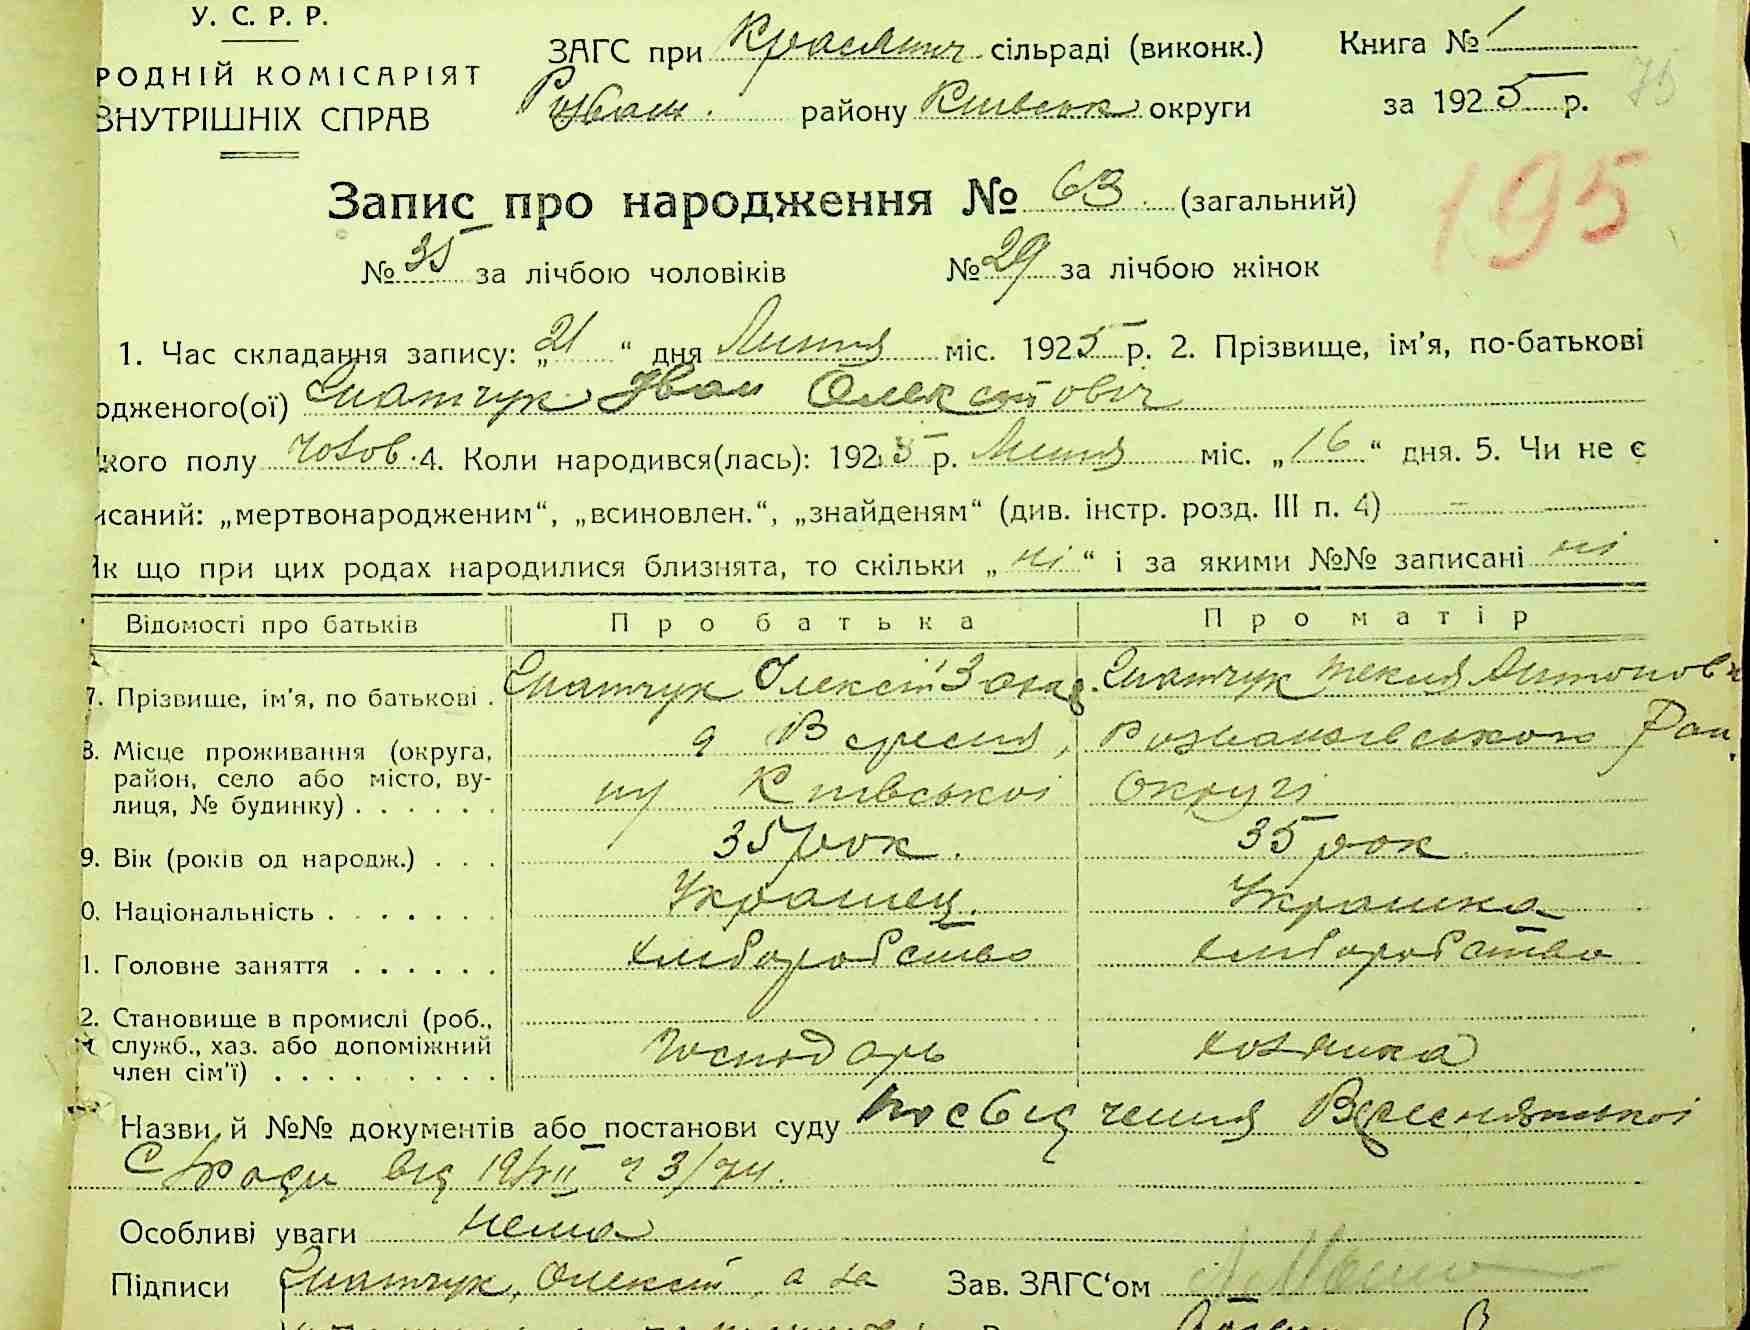 У. С. Р. Р.
РОДНІЙ КОМІСАРІЯТ
ВНУТРІШНІХ СПРАВ
ЗАГС при сільраді (виконк.)
району Київськ округи
Книга № 1
за 1925 р.
75
195
Запис про народження № 63 (загальний)
№ 35 за лічбою чоловіків № 29 за лічбою жінок
1. Час складання запису: „21“ дня Липня міс. 1925 р. 2. Прізвище, ім'я, по-батькові
одженого(ої) Ігнатчук Іван Олексійович
кого полу чолов. 4. Коли народився(лась): 1925 р. Липня міс. „16“ дня. 5. Чи не є
исаний: „мертвонародженим“, „всиновлен.“, „знайденям“ (див. інстр. розд. III п. 4) –
Як що при цих родах народилися близнята, то скільки „ні“ і за якими №№ записані ні
Відомості про батьків Про батька Про матір
7. Прізвище, ім'я, по батькові . Ігнатчук Олексій Ігнатчук Текля Антонов
8. Місце проживання (округа, район, село або місто, вулиця, № будинку) . . . . . . с Вересня, Розважевського Рай. ну Київської Округи
9. Вік (років од народж.) . . . 35 рок. 35 рок
0. Національність . . . . . . . Украінец. Украінка
1. Головне заняття . . . . . . хліборобство хліборобство
2. Становище в промислі (роб., служб., хаз. або допоміжний член сім'ї) . . . . . . . . . Господарь хозяйка
Назви й №№ документів або постанови суду посвідчення Вереснянської
С/ради від 19/VII ч 3/74.
Особливі уваги нема
Підписи Ігнатчук, Олексій, а за Зав. ЗАГС'ом